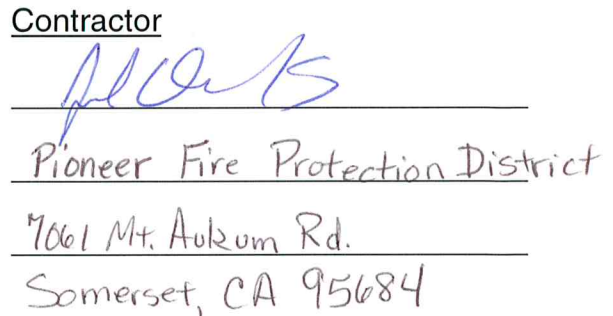 Contractor
Pioneer Fire Protection District
7061 Mt. Aukum Rd.
Somerset, CA 95684